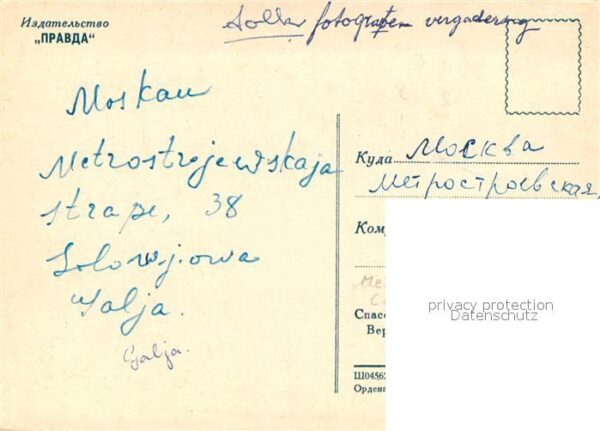 Издательство
„ПРАВДА“
fotografen vergadering
Moskau
Metrostrojewskaja
Strape, 38
Solowjowa
Galja.
Galja.
Куда Москва
Метростроевская,
Ком
Спасс
Вер
Ш0456
Ордена
privacy protection
Datenschutz